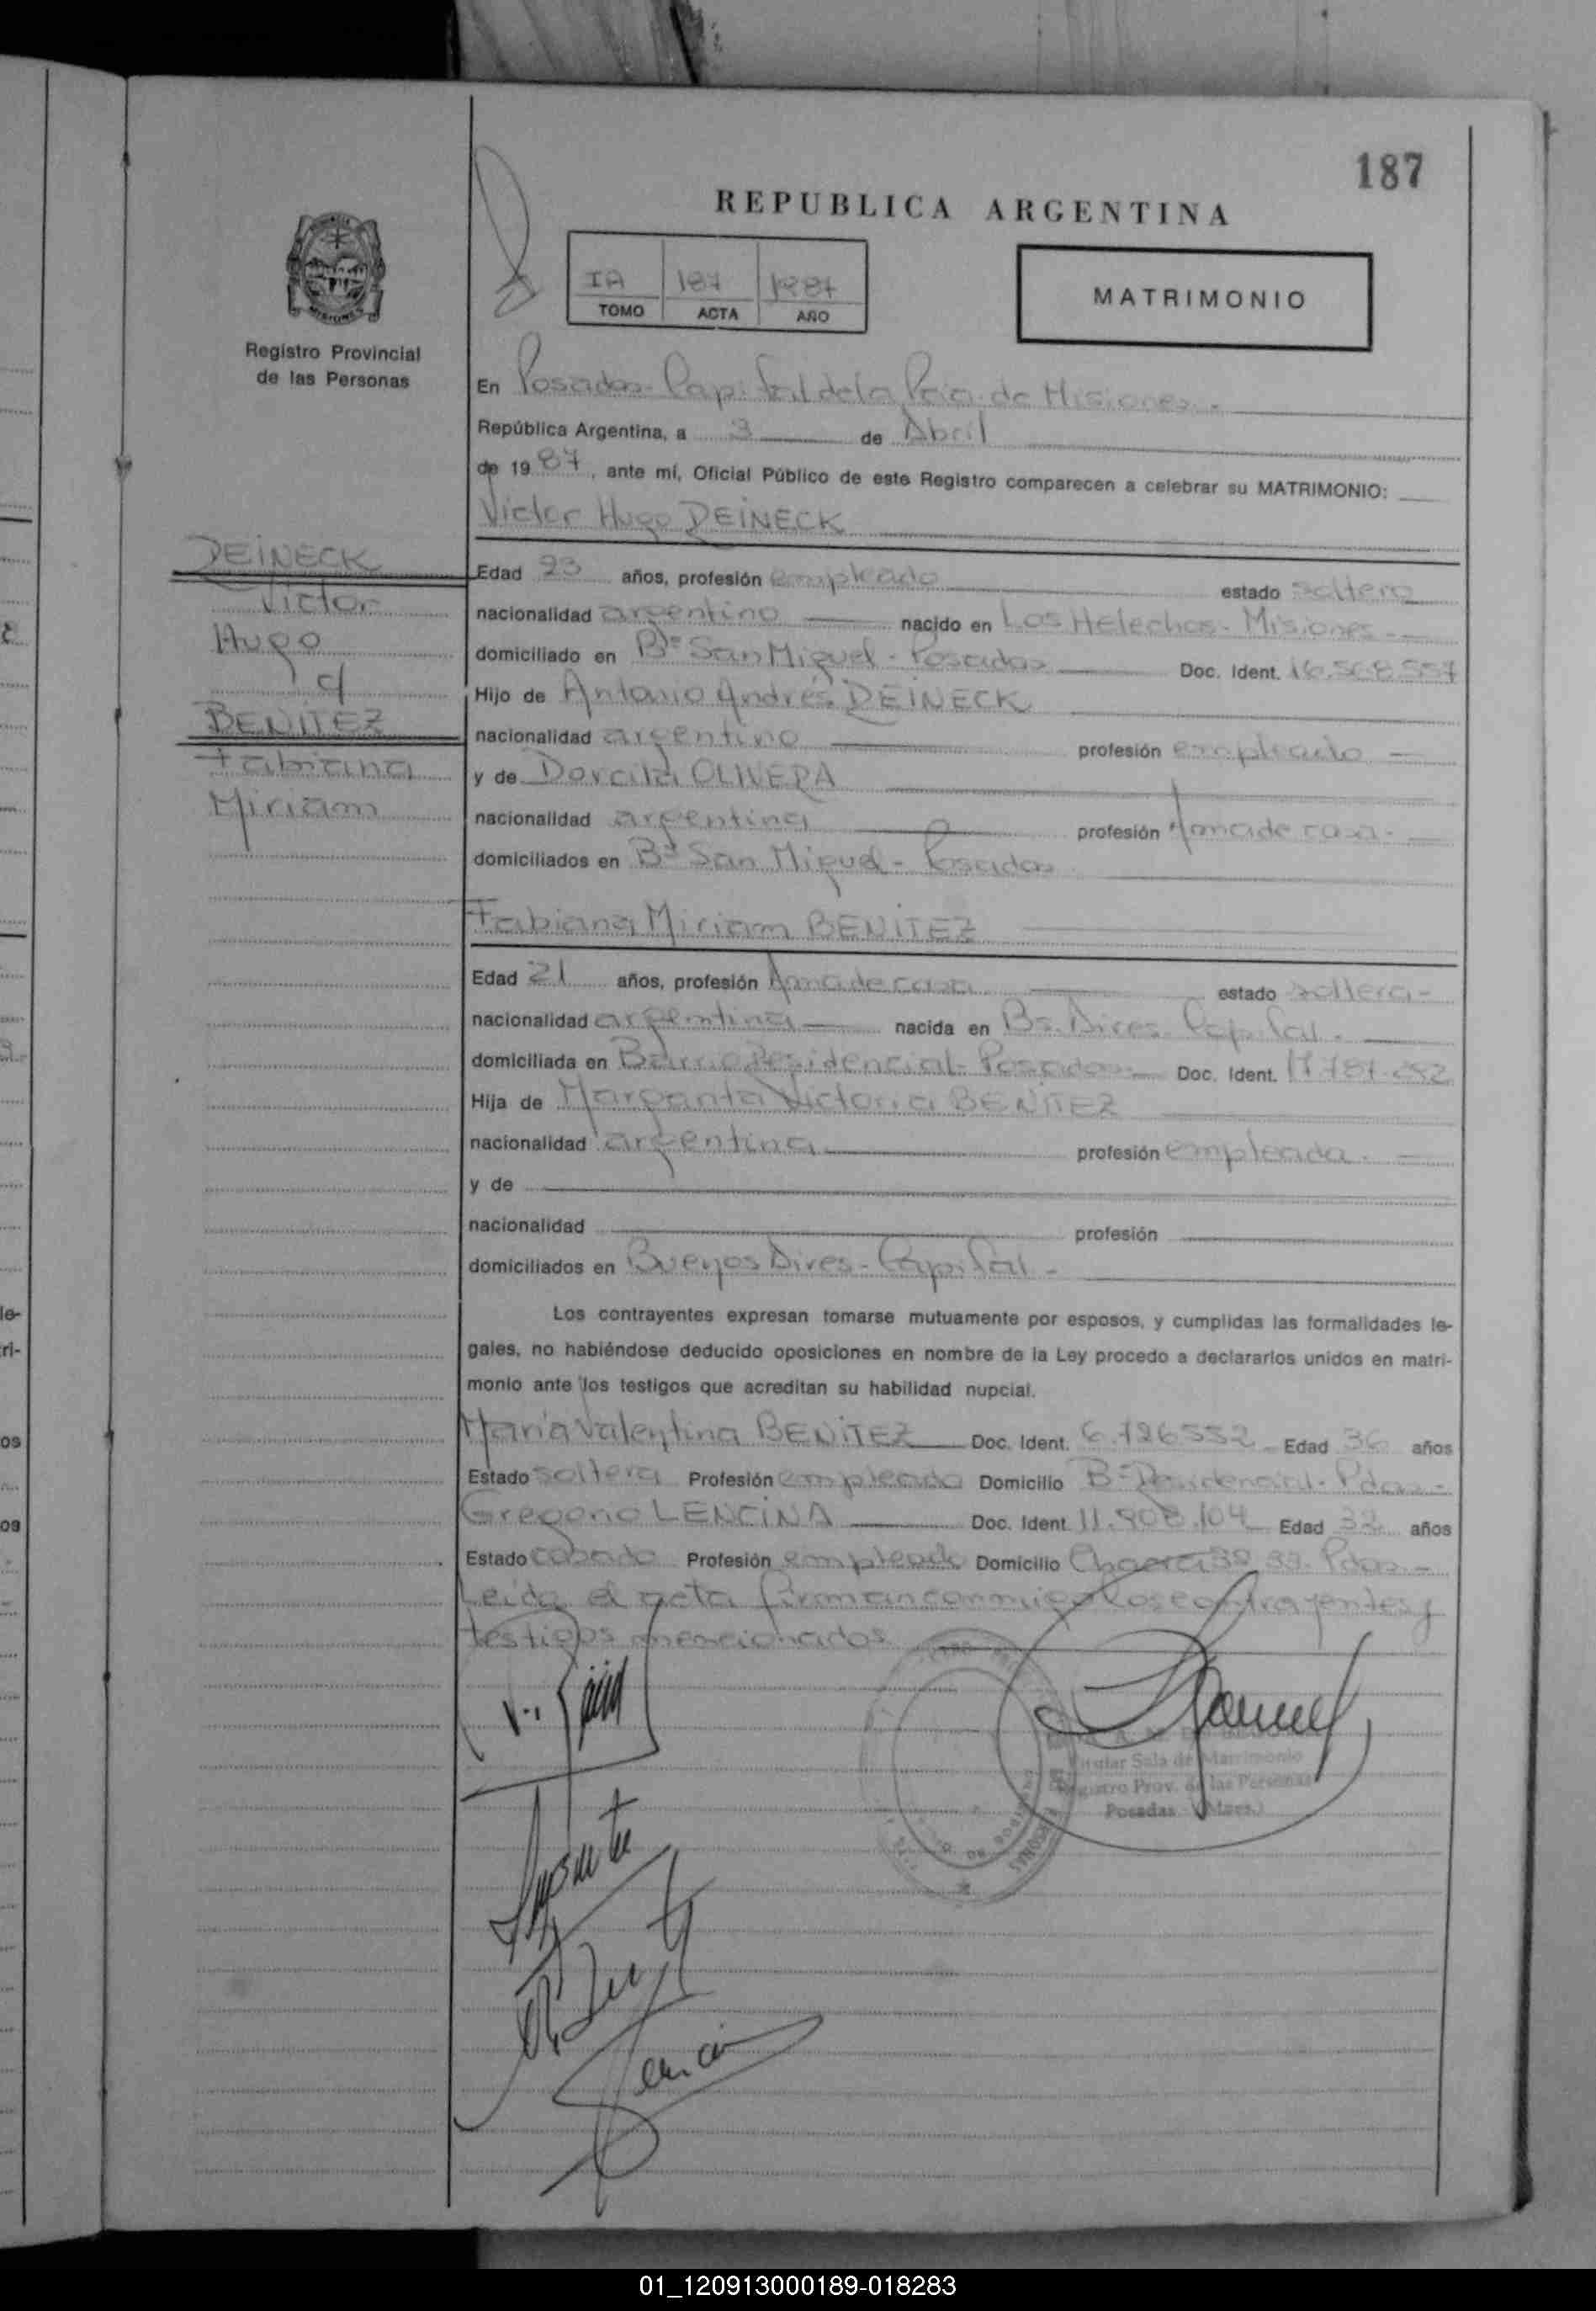 187
REPUBLICA ARGENTINA
IA 187 1987
TOMO ACTA AÑO
MATRIMONIO
Registro Provincial
de las Personas
En Posadas - Capital de la Pcia. de Misiones -
República Argentina, a 3 de Abril
de 1987, ante mí, Oficial Público de este Registro comparecen a celebrar su MATRIMONIO:
Victor Hugo DEINECK
DEINECK
Victor
Hugo
c/
BENITEZ
Fabiana
Miriam
Edad 23 años, profesión empleado estado soltero
nacionalidad argentino nacido en Los Helechos - Misiones -
domiciliado en Bº San Miguel - Posadas Doc. Ident. 16.568.557
Hijo de Antonio Andrés DEINECK
nacionalidad argentino profesión empleado
y de Dorcila OLIVERA
nacionalidad argentina profesión Ama de casa -
domiciliados en Bº San Miguel - Posadas
Fabiana Miriam BENITEZ
Edad 21 años, profesión Ama de casa estado soltera -
nacionalidad argentina nacida en Bs. Aires - Capital -
domiciliada en Barrio Residencial - Posadas - Doc. Ident. 17.787.292
Hija de Margarita Victoria BENITEZ
nacionalidad argentina profesión empleada -
y de
nacionalidad profesión
domiciliados en Buenos Aires - Capital -
Los contrayentes expresan tomarse mutuamente por esposos, y cumplidas las formalidades le-
gales, no habiéndose deducido oposiciones en nombre de la Ley procedo a declararlos unidos en matri-
monio ante los testigos que acreditan su habilidad nupcial.
María Valentina BENITEZ Doc. Ident. 6.726552 Edad 36 años
Estado soltera Profesión empleada Domicilio Bº Residencial - Pdas -
Gregorio LENCINA Doc. Ident. 11.808.104 Edad 32 años
Estado casado Profesión empleado Domicilio Chacra 32 33 - Pdas -
Leída el acta firman conmigo los contrayentes y
testigos mencionados
Titular Sala de Matrimonio
Registro Prov. de las Personas
Posadas (Mnes.)
01_120913000189-018283